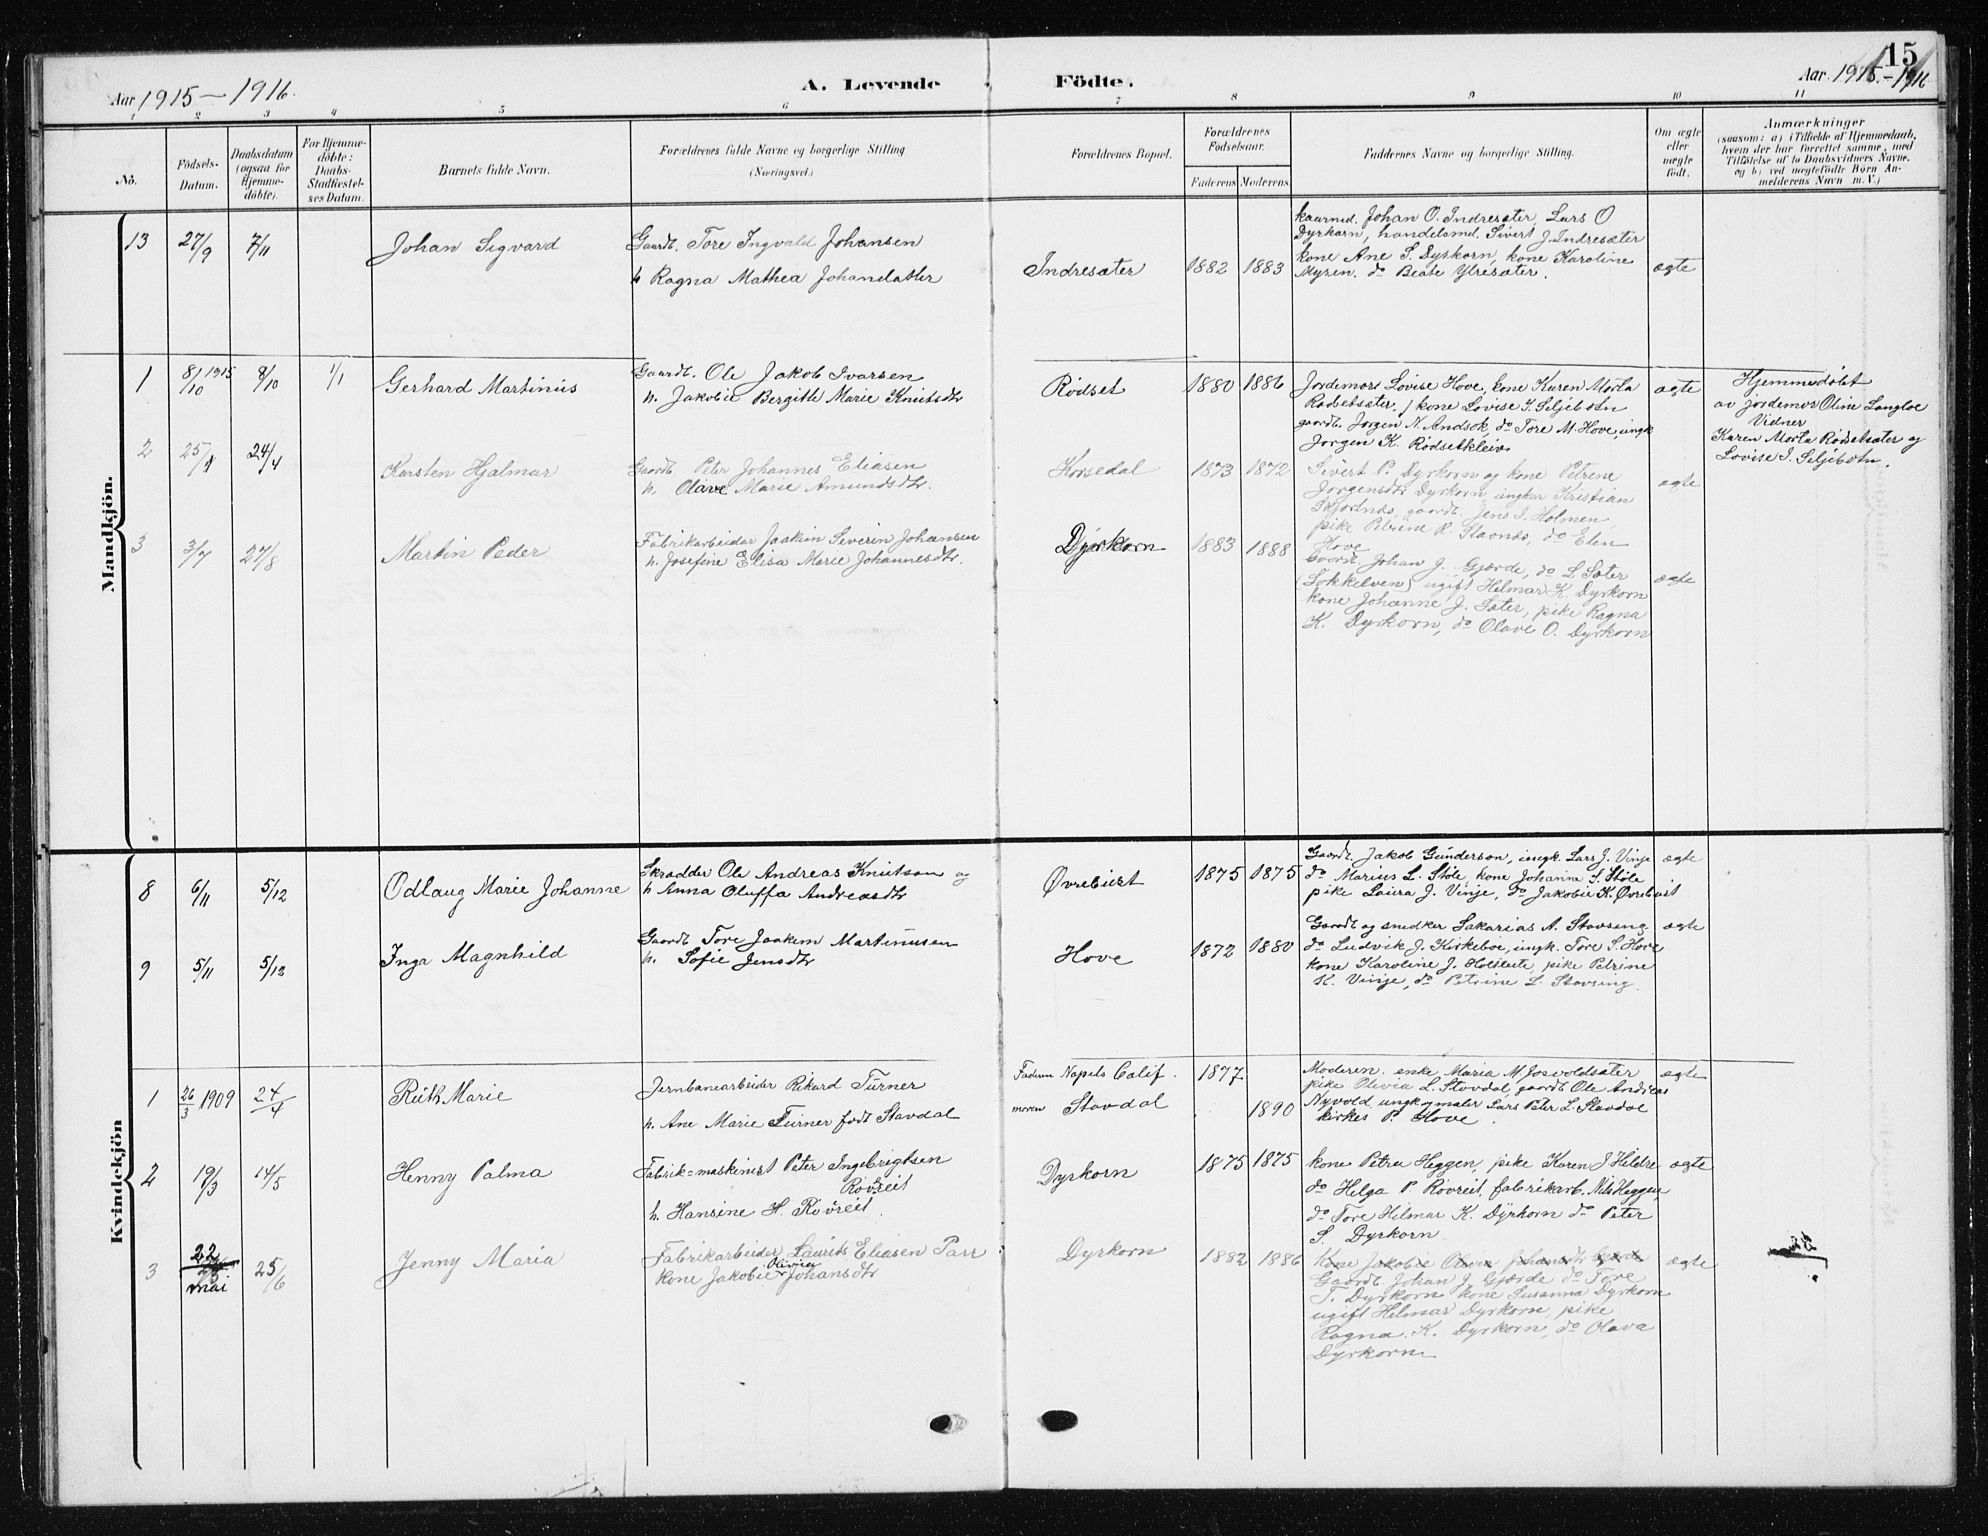 Aar 1915 – 1916.
A. Levende Födte.
Aar 1915. – 1916
15
1 2 3 4 5 6 7 8 9 10 11
No.
Födsels-
Datum.
Daabsdatum
(ogsaa for
Hjemme-
döbte).
For Hjemme-
döbte:
Daabs-
Stadfæstel-
ses Datum.
Barnets fulde Navn.
Forældrenes fulde Navne og borgerlige Stilling
(Næringsvei.)
Forældrenes Bopæl.
Forældrenes
Födselsaar.
Faderens Moderens
Faddernes Navne og borgerlige Stilling.
Om ægte
eller
uægte
födt.
Anmærkninger
(saasom: a) i Tilfælde af Hjemmedaab,
hvem der har forrettet samme, med
Tilföielse af to Daabsvidners Navne.
og b) ved uægtefödte Börn An-
melderens Navn m. V.)
Mandkjön.
13 27/9 7/11 Johan Sigvard
Gaardb. Tore Ingvald Johansen
h Ragna Mathea Johandatter
Indresæter 1882 1883
Johan O. Indresæter, Lars O
Dyrkorn, handelsmd. Sivert J. Indresæter
kone Ane S. Dyrkorn, kone Karoline
Myren. do Beate Ytresæter.
ægte
1 8/10 1915 8/10 1/1 Gerhard Martinus
Gaardb. Ole Jakob Ivarsen
h. Jakobie Bergitte Marie Knutsdtr
Rødset 1880 1886
Jordemor Lovise Hove, kone Karen Marta
Rødsetsæter, kone Lovise I. Seljebotn
gaardb. Jørgen N. Andsok, do Tore M. Hove, ungk
Jørgen K. Rødsetkleiv.
ægte
Hjemmedøbt
av jordemor Oline Langloe
Vidner
Karen Marta Rødsetsæter og
Lovise I. Seljebotn.
2 25/1 24/4 Karsten Hjalmar
Gaardb. Peter Johannes Eliasen
h. Olave Marie Amundsdtr.
Korsedal 1873 1872
Sivert P. Dyrkorn og kone Petrine
Jørgensdtr Dyrkorn, ungkar Kristian
gaardb. Jens I. Holmen,
pike Petrine R. do Elen
Hove
ægte
3 3/7 27/8 Martin Peder
Fabrikarbeider Joakim Severin Johansen
h. Josefine Elisa Marie Johannesdtr.
Dyrkorn 1883 1888
Gaardb. Johan J. Gjærde, do L Sæter
ugift Helmar K. Dyrkorn
kone Johanne J. Sæter, pike Ragna
K. Dyrkorn, do Olave O. Dyrkorn
ægte
Kvindekjön
8 6/11 5/12 Odlaug Marie Johanne
Skradder Ole Andreas Knutson og
h Anna Oluffa Andreasdtr
Øvrebust 1875 1875
Gaardb. Jakob Gunderson, ungk. Lars J. Vinje
do Marius L. Støle kone Johanne S. Støle
pike Laura J. Vinje, do Jakobie K. Øvrebust
ægte
9 5/11 5/12 Inga Magnhild
Gaardb. Tore Joakim Martinusen
h. Sofie Jensdtr
Hove 1872 1880
Gaardb og snedker Sakarias A. Stavseng
do Ludvik J. Kirkeboe, ungk. Tore S. Hove
kone Karoline J. pike Petrine
K. Vinje, do Petrine L. Stavseng.
ægte
1 26/3 1909 24/4 Ruth Marie
Jernbanearbeider Rikard Turner
h. Ane Marie Turner født Stavdal
Faderen Napels Calif. 1877
moren Stavdal 1890
Moderen. enke Maria M. Josvoldsæter
pike Olivia L. Stavdal, gaardb. Ole Andreas
Nyvold ungk. og maler Lars Peter L. Stavdal
kirkes P. Hove.
ægte
2 19/3 14/5 Henny Palma
Fabrik=maskinist Peter Ingebrigtsen
Røvreit
h. Hansine H. Røvreit.
Dyrkorn 1875 1875
kone Petra Heggen, pike Karen J Hildre
do Helga P. Røvreit, fabrikarb. Nils Heggen,
do Tore Hilmar K. Dyrkorn do Peter
S. Dyrkorn.
ægte
3 22 mai 25/6 Jenny Maria
Fabrikarbeider Laurits Eliasen Parr
kone Jakobie Olivia Johansdtr
Dyrkorn 1882 1886
Kone Jakobie Olivia Johansdtr Gjærde
Gaardb. Johan J. Gjærde do Tore
T. Dyrkorn kone Susanna Dyrkorn
ugift Helmar Dyrkorn, pike
Ragna. K. Dyrkorn, do Olava
Dyrkorn
ægte